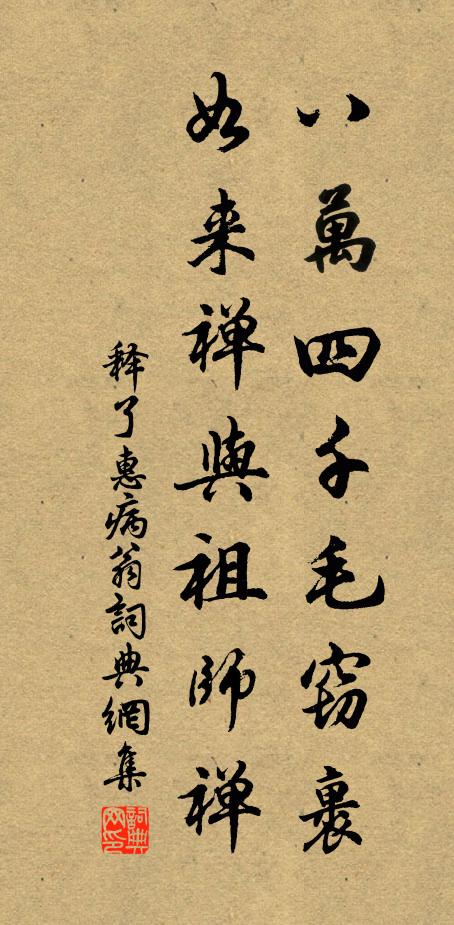 八萬四千毛竅裏
如来禅與祖師禅
释了惠病翁詞典網集
詞典
网印